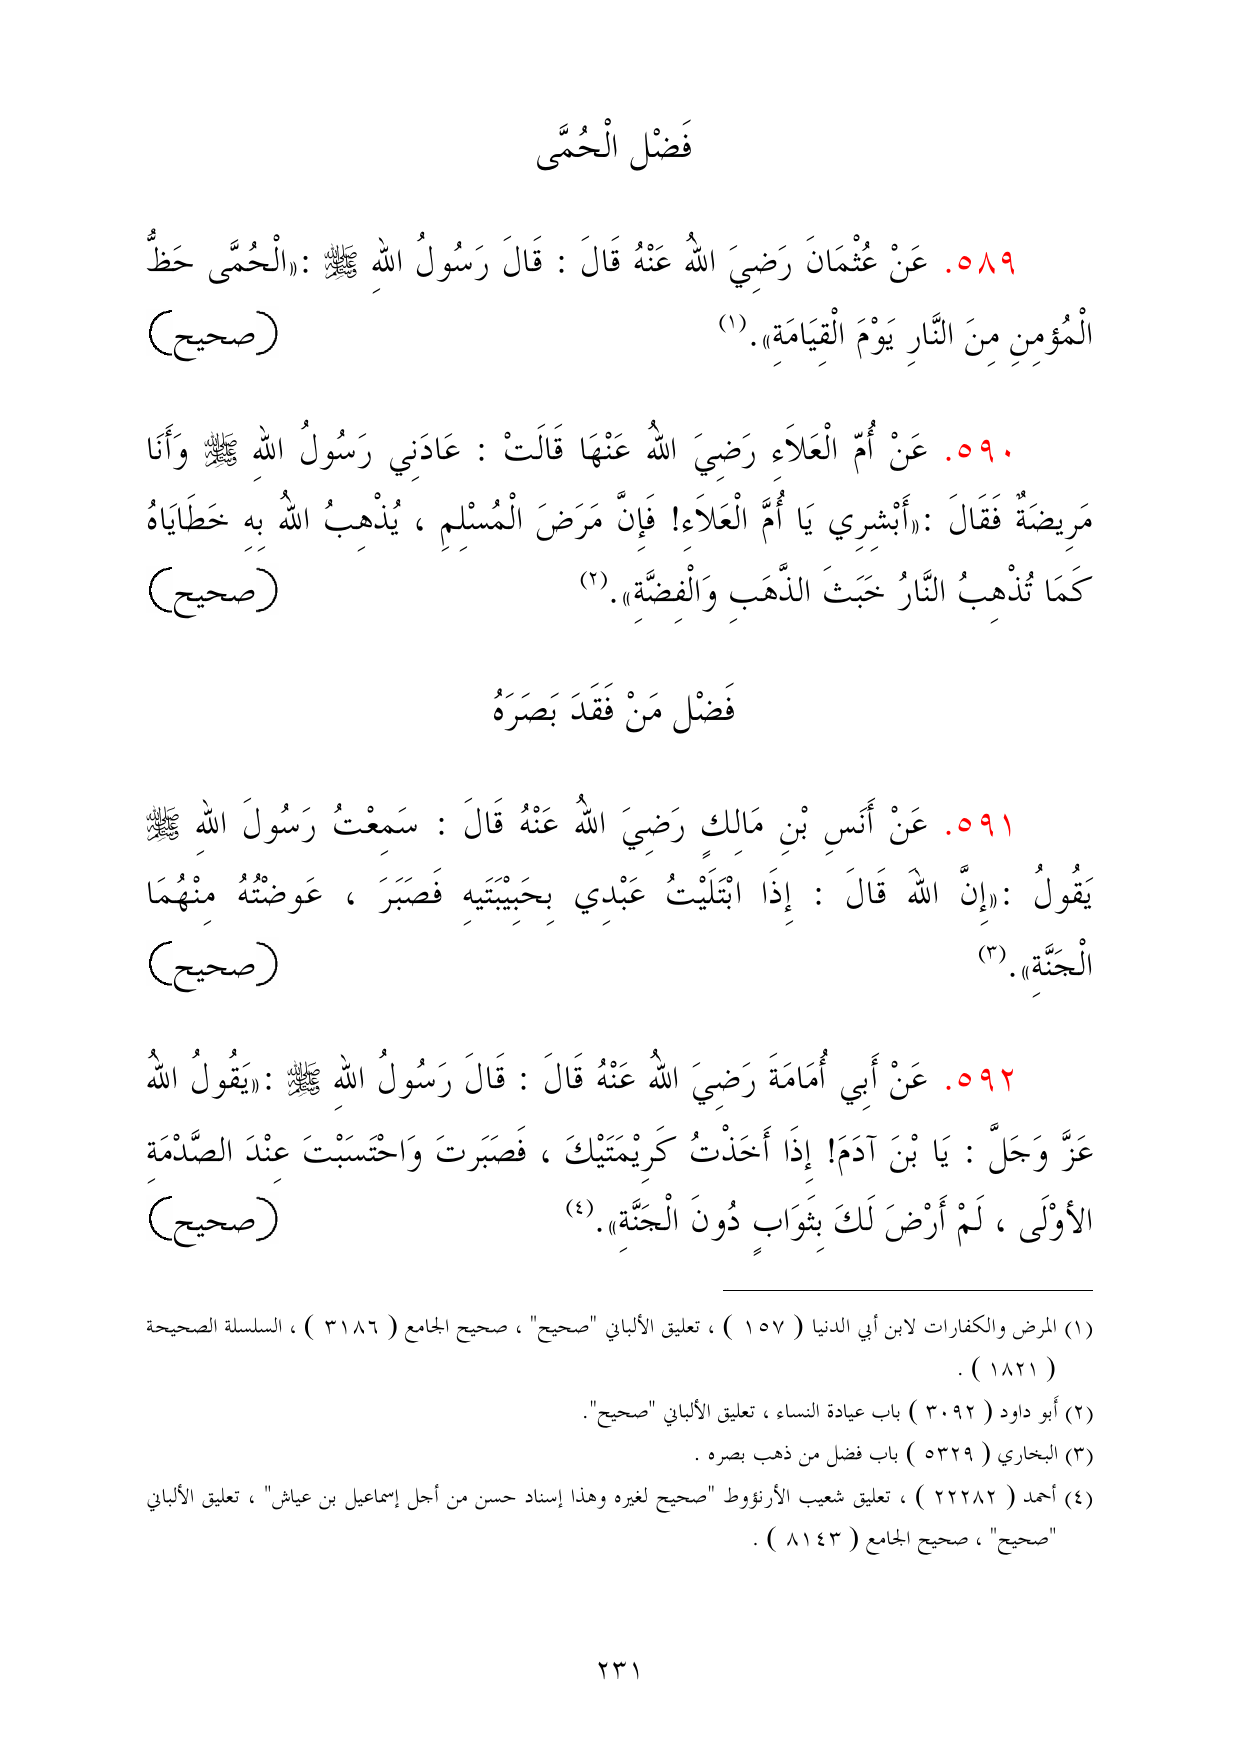 فَضْل الْحُمَّى
٥٨٩. عَنْ عُثْمَانَ رَضِيَ اللهُ عَنْهُ قَالَ : قَالَ رَسُولُ اللهِ ﷺ :«الْحُمَّى حَظُّ
الْمُؤمِنِ مِنَ النَّارِ يَوْمَ الْقِيَامَةِ».(١) (صحيح)
٥٩٠. عَنْ أُمّ الْعَلاَءِ رَضِيَ اللهُ عَنْهَا قَالَتْ : عَادَنِي رَسُولُ اللهِ ﷺ وَأَنَا
مَرِيضَةٌ فَقَالَ :«أَبْشِرِي يَا أُمَّ الْعَلاَءِ! فَإِنَّ مَرَضَ الْمُسْلِمِ ، يُذْهِبُ اللهُ بِهِ خَطَايَاهُ
كَمَا تُذْهِبُ النَّارُ خَبَثَ الذَّهَبِ وَالْفِضَّةِ».(٢) (صحيح)
فَضْل مَنْ فَقَدَ بَصَرَهُ
٥٩١. عَنْ أَنَسِ بْنِ مَالِكٍ رَضِيَ اللهُ عَنْهُ قَالَ : سَمِعْتُ رَسُولَ اللهِ ﷺ
يَقُولُ :«إِنَّ اللهَ قَالَ : إِذَا ابْتَلَيْتُ عَبْدِي بِحَبِيْبَتَيهِ فَصَبَرَ ، عَوضْتُهُ مِنْهُمَا
الْجَنَّةِ».(٣) (صحيح)
٥٩٢. عَنْ أَبِي أُمَامَةَ رَضِيَ اللهُ عَنْهُ قَالَ : قَالَ رَسُولُ اللهِ ﷺ :«يَقُولُ اللهُ
عَزَّ وَجَلَّ : يَا بْنَ آدَمَ! إِذَا أَخَذْتُ كَرِيْمَتَيْكَ ، فَصَبَرتَ وَاحْتَسَبْتَ عِنْدَ الصَّدْمَةِ
الأوْلَى ، لَمْ أَرْضَ لَكَ بِثَوَابٍ دُونَ الْجَنَّةِ».(٤) (صحيح)
(١) المرض والكفارات لابن أبي الدنيا ( ١٥٧ ) ، تعليق الألباني "صحيح" ، صحيح الجامع ( ٣١٨٦ ) ، السلسلة الصحيحة
( ١٨٢١ ) .
(٢) أَبو داود ( ٣٠٩٢ ) باب عيادة النساء ، تعليق الألباني "صحيح".
(٣) البخاري ( ٥٣٢٩ ) باب فضل من ذهب بصره .
(٤) أحمد ( ٢٢٢٨٢ ) ، تعليق شعيب الأرنؤوط "صحيح لغيره وهذا إسناد حسن من أجل إسماعيل بن عياش" ، تعليق الألباني
"صحيح" ، صحيح الجامع ( ٨١٤٣ ) .
٢٣١